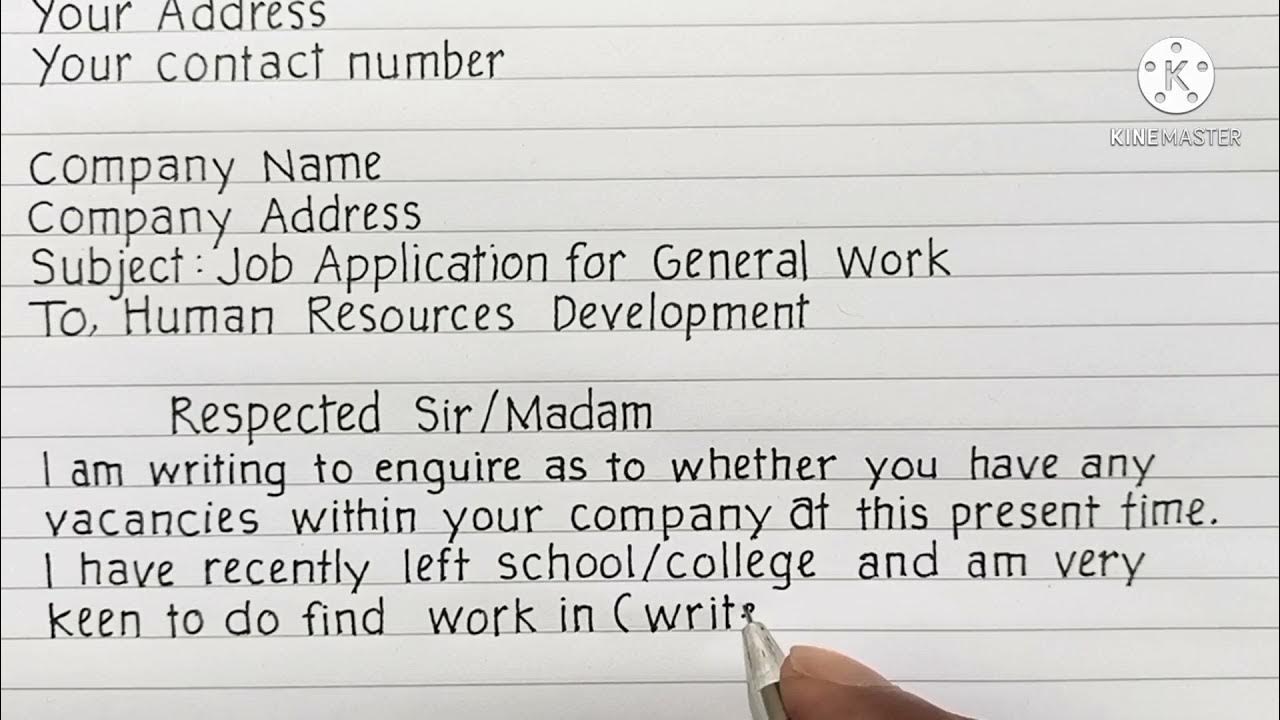 Your Address
Your contact number
K
KINEMASTER
Company Name
Company Address
Subject: Job Application for General Work
To, Human Resources Development
Respected Sir/Madam
I am writing to enquire as to whether you have any
vacancies within your company at this present time.
I have recently left school/college and am very
keen to do find work in (write